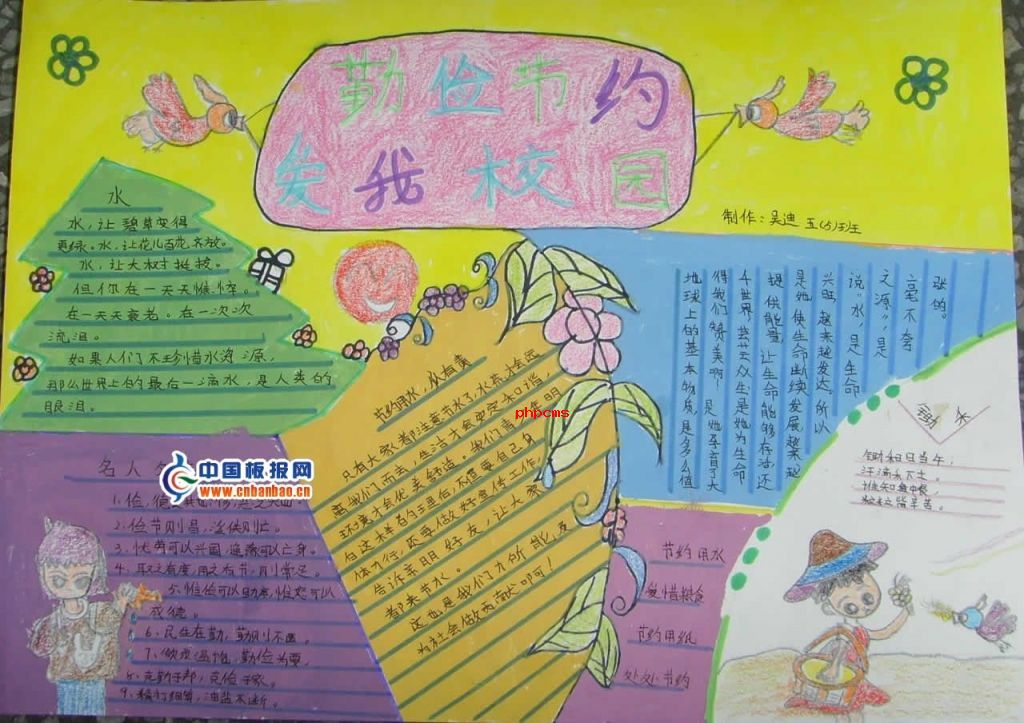 勤俭节约
爱我校园
制作：吴迪 五(5)班
水
水，让碧草变得
更绿。水，让花儿百花齐放。
水，让大树挺拔。
但你在一天天憔悴。
在一天天衰老。在一次次
流泪。
如果人们不珍惜水资源，
那么世界上的最后一滴水，是人类的
眼泪。
张的。
毫不夸
之源，"是
说"水，是生命
兴旺，越来越发达。所以
是她使生命断续发展，越来越
提供能量，让生命能够存活，还
大世界，芸芸众生，是她为生命
得我们赞美啊！是她孕育了大
地球上的基本物质，是多么值
节约用水，从有责
只有大家都注意节水了，水荒才会远
离我们而去，生活才会更定和谐，
环境才会优美舒适。我们青少年明
白这样者的道理后，不仅要自己身
体力行，还要做好宣传工作，
告诉亲朋好友，让大家
都来节水。
这也是我们力所能及
为社会做的贡献啊！
phpcms
锄禾
锄禾日当午，
汗滴禾下土。
谁知盘中餐
粒粒皆辛苦。
名人
中国板报网
www.cnbanbao.cn
1、俭，德
2、俭节则昌，淫佚则亡。
3、忧劳可以兴国，逸豫可以亡身。
4、取之有度，用之有节，则常足。
5、惟俭可以助廉，惟恕可以
成德。
6、民生在勤，勤则不匮。
7、
勤俭为要。
8、克勤于邦，克俭于家。
9、精打细算，油盐不断。
节约用水
爱惜粮食
节约用纸
处处节约